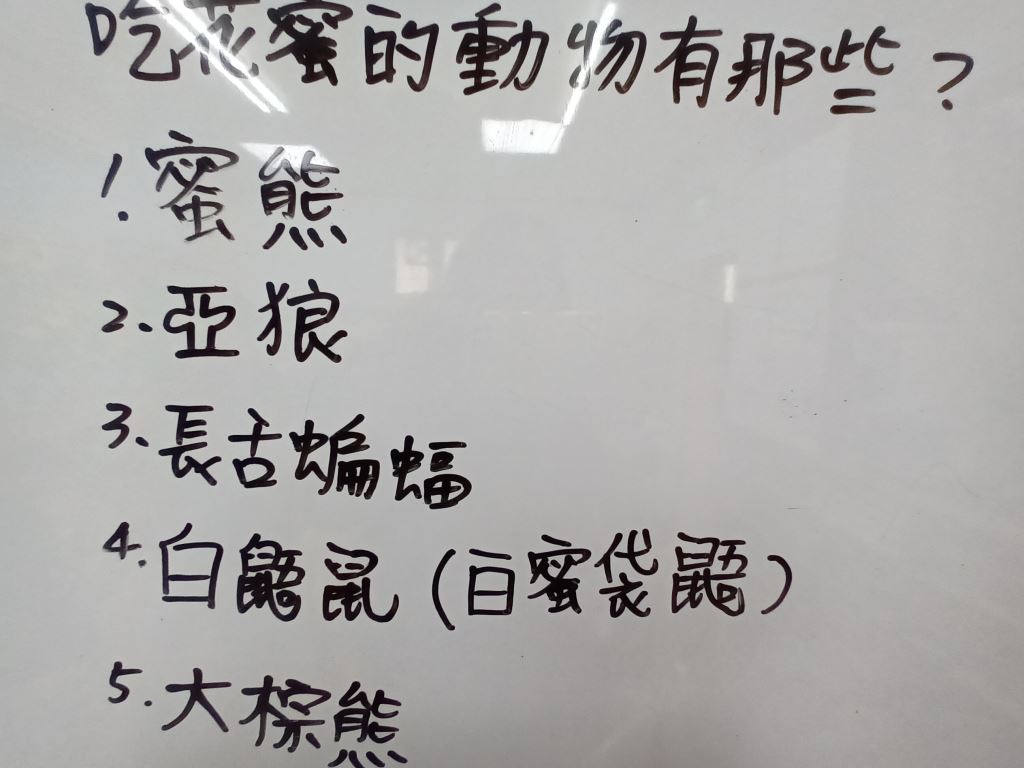 吃花蜜的動物有那些?
1. 蜜熊
2. 亞狼
3. 長舌蝙蝠
4. 白鼯鼠(白蜜袋鼯)
5. 大棕熊